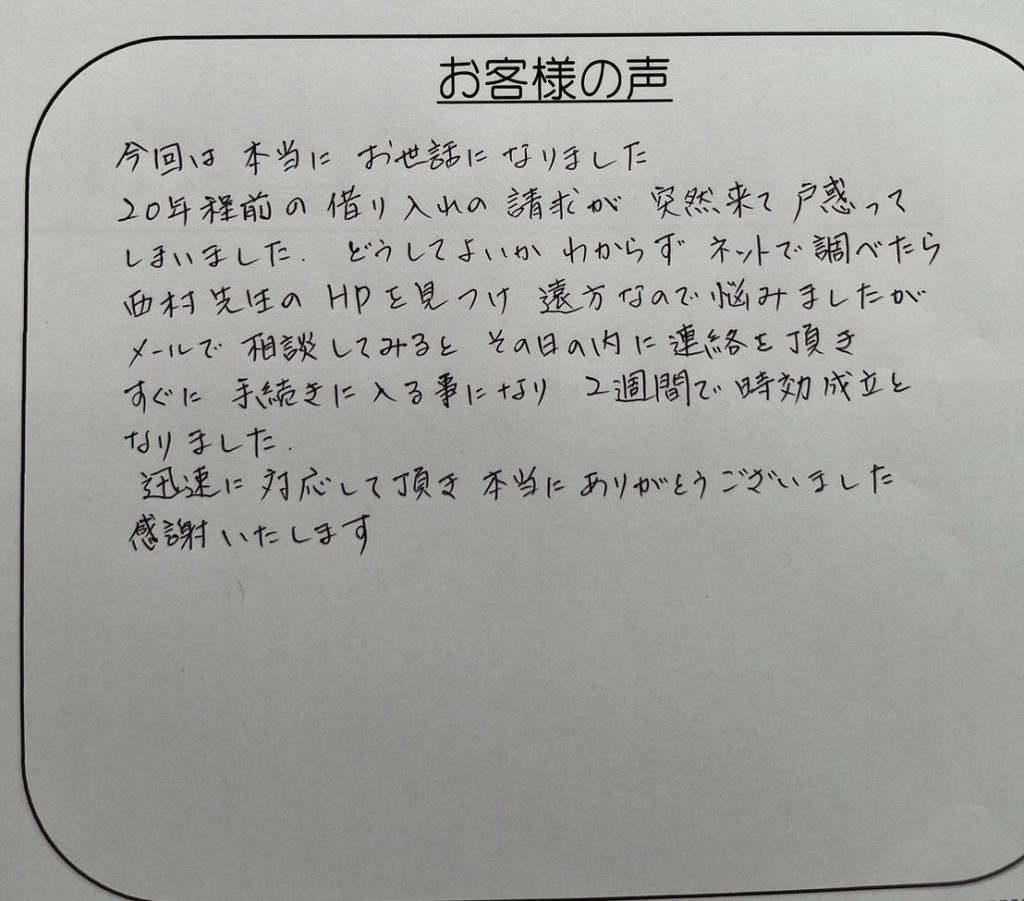 お客様の声
今回は 本当に お世話に なりました
20年程前の 借り入れの 請求が 突然来て 戸惑って
しまいました. どうしてよいか わからず ネットで調べたら
西村先生の HPを見つけ 遠方なので悩みましたが
メールで 相談してみると その日の内に連絡を頂き
すぐに 手続きに入る事になり 2週間で時効成立と
なりました.
迅速に 対応して頂き 本当に ありがとうございました
感謝いたします